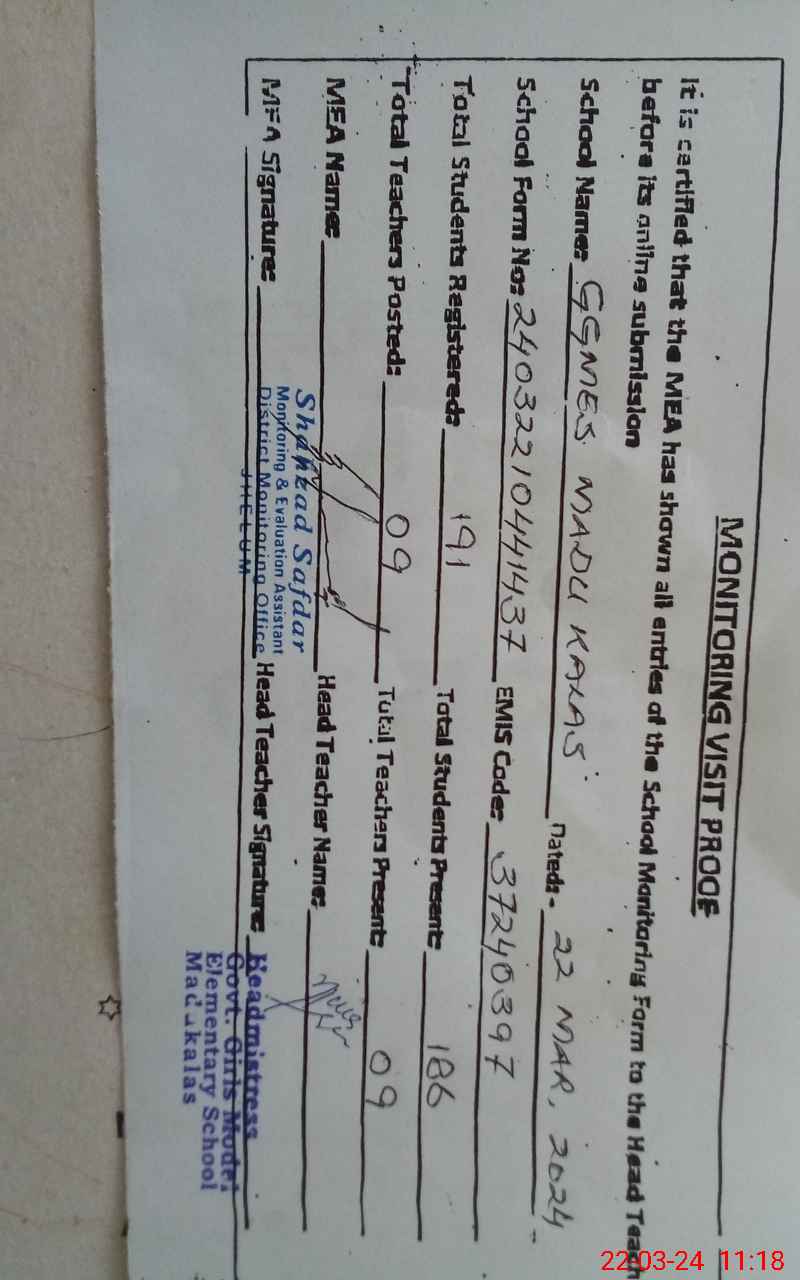 MONITORING VISIT PROOF
It is certified that the MEA has shown all entries of the School Monitoring Form to the Head Teach
before its online submission
School Name: GGMES MADU KALAS Dated:- 22 MAR, 2024
School Form No: 24032210441437 EMIS Code: 37240397
Total Students Registered: 191 Total Students Present: 186
Total Teachers Posted: 09 Total Teachers Present: 09
MEA Name: Head Teacher Name:
Shahzad Safdar
Monitoring & Evaluation Assistant
District Monitoring Office
JHELUM
MEA Signature: Head Teacher Signature:
Headmistress
Govt. Girls Model
Elementary School
Madukalas
22-03-24 11:18